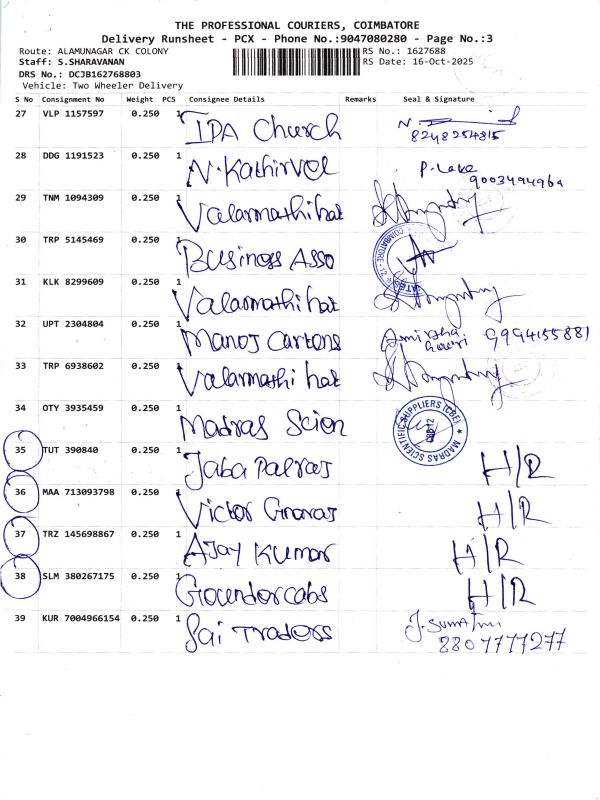 THE PROFESSIONAL COURIERS, COIMBATORE
Delivery Runsheet - PCX - Phone No.:9047080280 - Page No.:3
Route: ALAMUNAGAR CK COLONY RS No.: 1627688
Staff: S.SHARAVANAN RS Date: 16-Oct-2025
DRS No.: DCJB162768803
Vehicle: Two Wheeler Delivery
S No Consignment No Weight PCS Consignee Details Remarks Seal & Signature
27 VLP 1157597 0.250 1 IPA Church
8248254815
28 DDG 1191523 0.250 1 N.Kathirvel
9003494969
29 TNM 1094309 0.250 1 Valarmathi hat
30 TRP 5145469 0.250 1 Business Asso
COIMBATORE
31 KLK 8299609 0.250 1 Valarmathi hat
32 UPT 2304804 0.250 1 Manoj Cartons 9994155881
33 TRP 6938602 0.250 1 Valarmathi hat
34 OTY 3935459 0.250 1 Madras Scien
MADRAS SCIENTIFIC SUPPLIERS (CBE)
35 TUT 390840 0.250 1 Jaba Palraj H/R
36 MAA 713093798 0.250 1 Victor Gnanaj H/R
37 TRZ 145698867 0.250 1 Ajay Kumar H/R
38 SLM 380267175 0.250 1 Goundercabs H/R
39 KUR 7004966154 0.250 1 Sai Traders J.Sumathi
8807777277